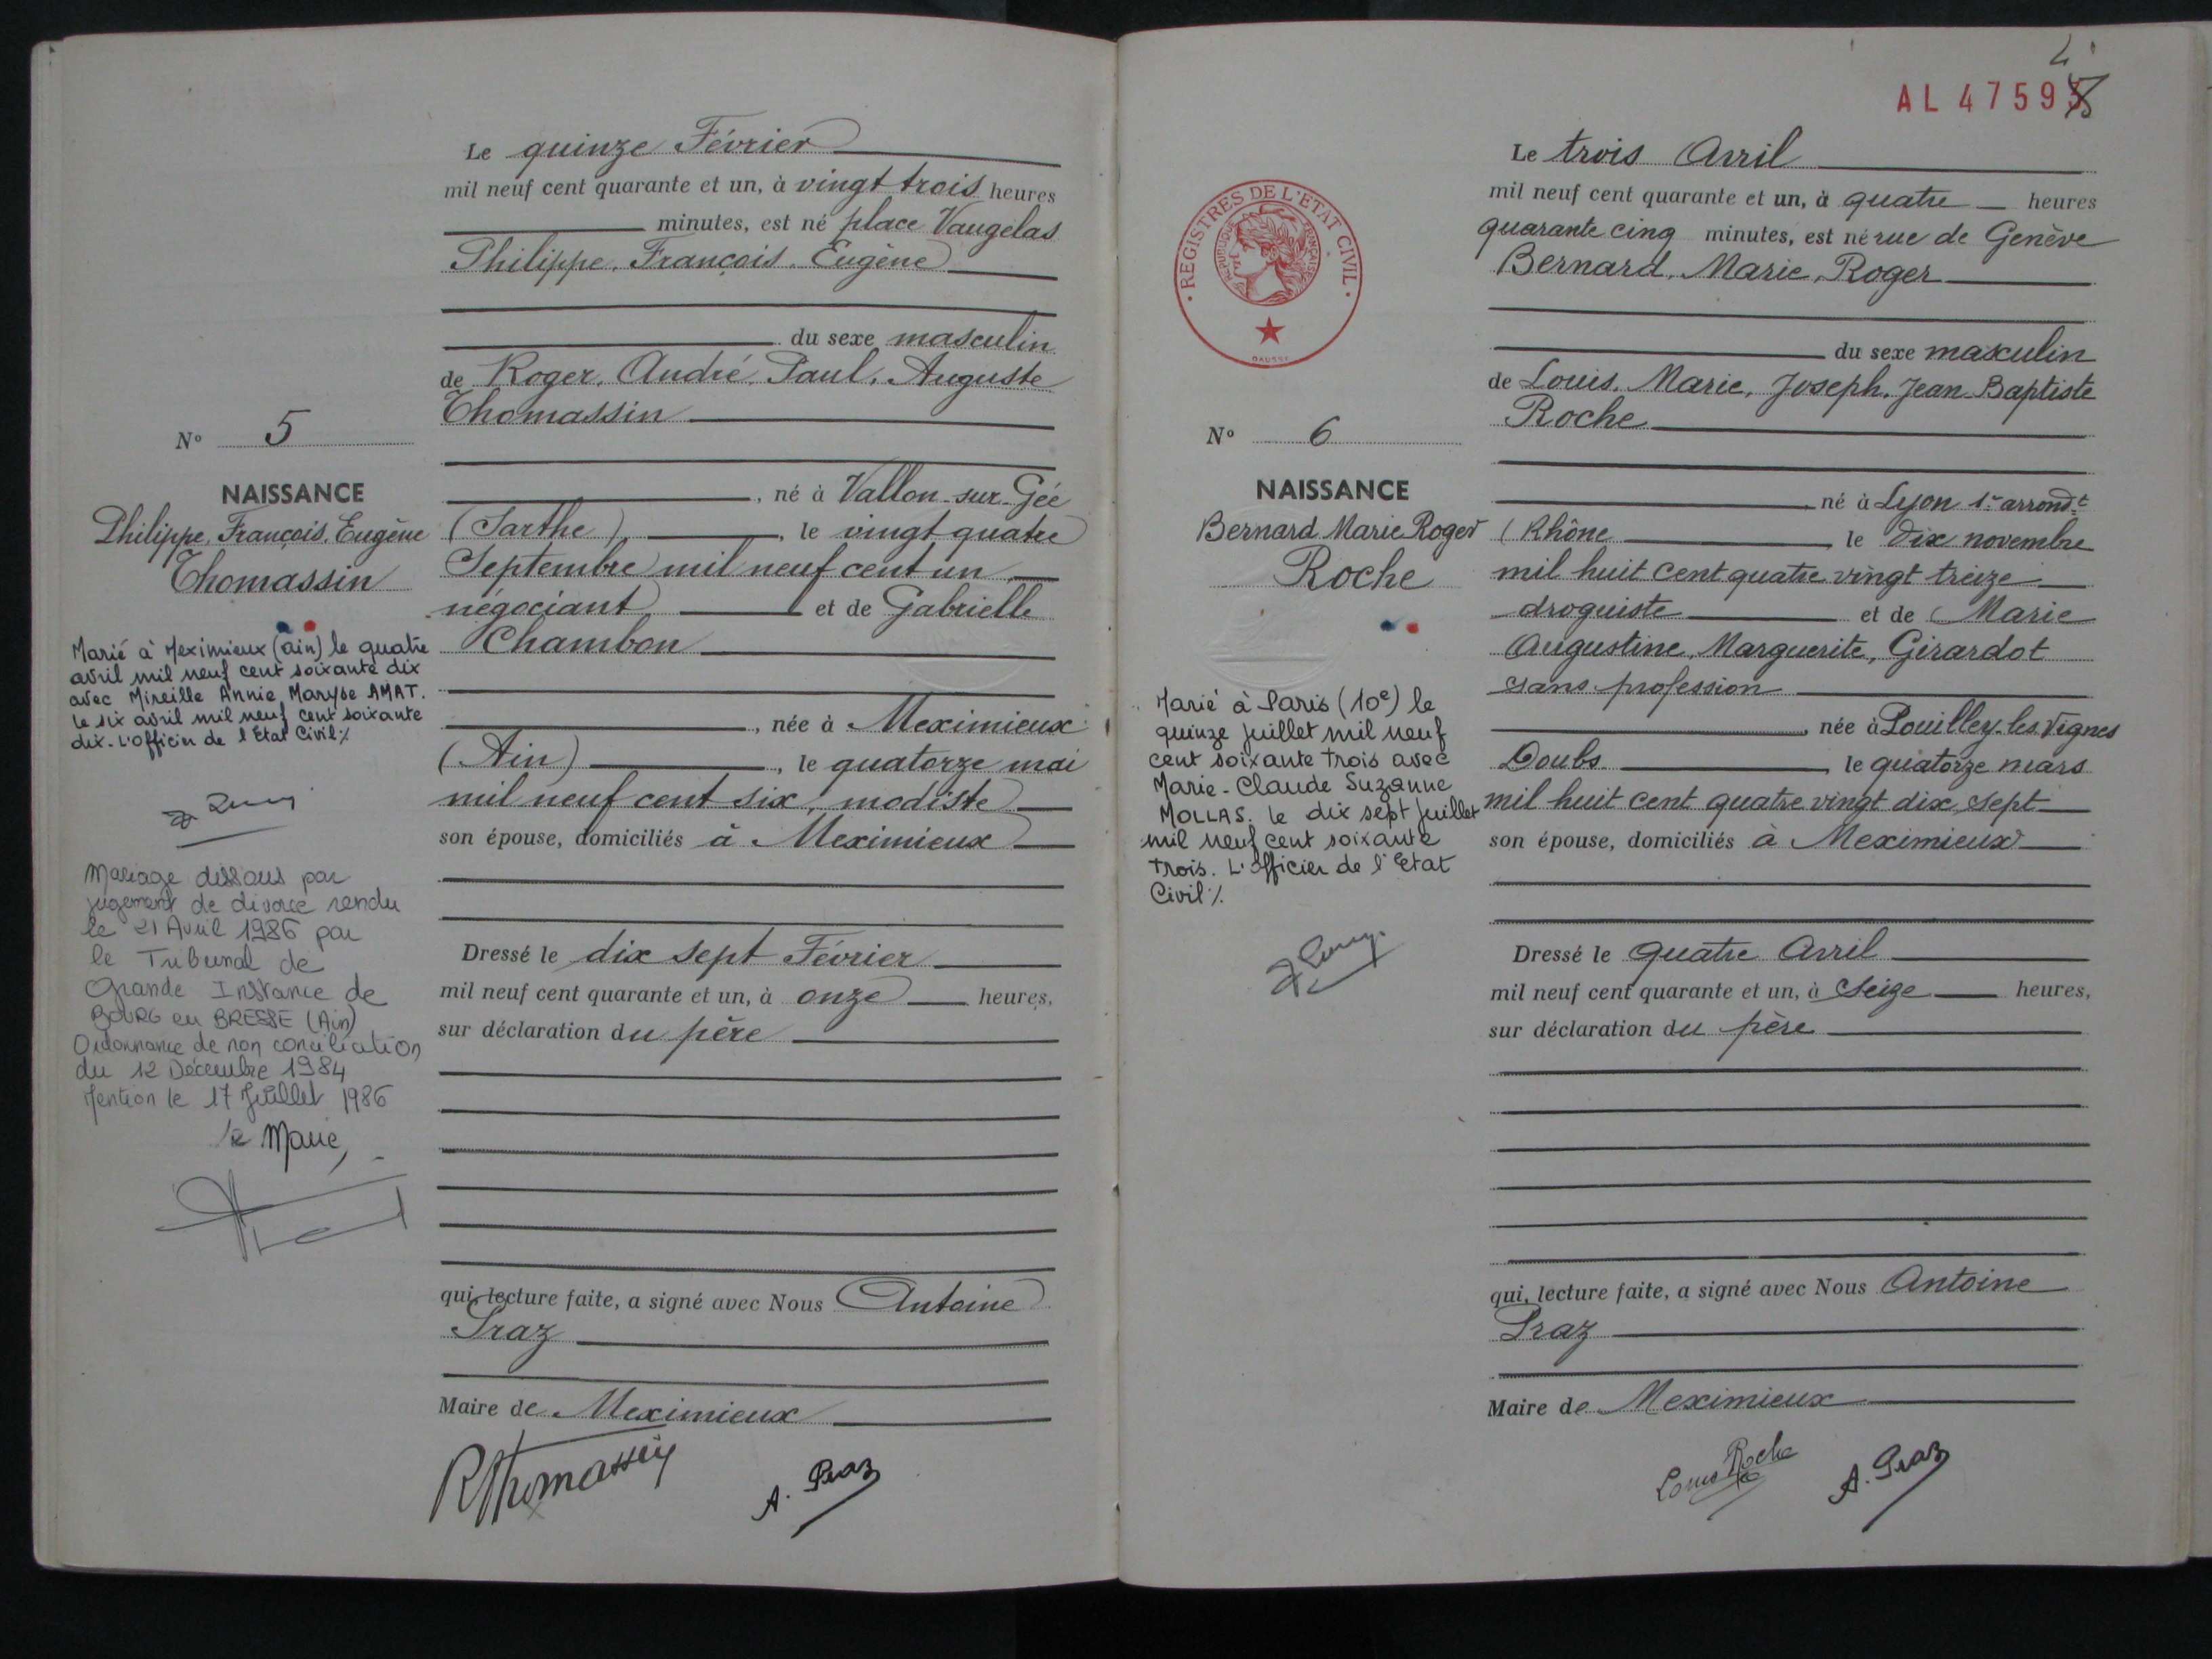 Le quinze Février
mil neuf cent quarante et un, à vingt trois heures
minutes, est né place Vaugelas
Philippe, François, Eugène
du sexe masculin
de Roger, André, Paul, Auguste
Thomassin
N° 5
NAISSANCE
Philippe, François, Eugène
Thomassin
, né à Vallon-sur-Gée
(Sarthe), le vingt quatre
Septembre mil neuf cent un
négociant et de Gabrielle
Chambon
, née à Meximieux
(Ain), le quatorze mai
mil neuf cent six, modiste
son épouse, domiciliés à Meximieux
Marié à Meximieux (Ain) le quatre
avril mil neuf cent soixante dix
avec Mireille Annie Maryse AMAT.
le six avril mil neuf cent soixante
dix. L'officier de l'Etat Civil ./.
Mariage dissous par
jugement de divorce rendu
le 21 Avril 1986 par
le Tribunal de
Grande Instance de
BOURG en BRESSE (Ain)
Ordonnance de non conciliation
du 12 Décembre 1984
Mention le 17 Juillet 1986
le Maire,
Dressé le dix sept Février
mil neuf cent quarante et un, à onze heures,
sur déclaration du père
qui, lecture faite, a signé avec Nous Antoine
Praz
Maire de Meximieux
RThomassin
A. Praz
AL 4759
Le trois Avril
mil neuf cent quarante et un, à quatre heures
quarante cinq minutes, est né rue de Genève
Bernard, Marie, Roger
du sexe masculin
de Louis, Marie, Joseph, Jean-Baptiste
Roche
REGISTRES DE L'ETAT CIVIL
REPUBLIQUE FRANÇAISE
N° 6
NAISSANCE
Bernard Marie Roger
Roche
né à Lyon 1er arrondt
(Rhône le dix novembre
mil huit cent quatre vingt treize
droguiste et de Marie
Augustine, Marguerite, Girardot
sans profession
, née à Pouilley-les-Vignes
Doubs, le quatorze mars
mil huit cent quatre vingt dix sept
son épouse, domiciliés à Meximieux
Marié à Paris (10e) le
quinze juillet mil neuf
cent soixante trois avec
Marie-Claude Suzanne
MOLLAS. le dix sept juillet
mil neuf cent soixante
trois. L'officier de l'Etat
Civil ./.
Dressé le quatre Avril
mil neuf cent quarante et un, à seize heures,
sur déclaration du père
qui, lecture faite, a signé avec Nous Antoine
Praz
Maire de Meximieux
Louis Roche
A. Praz